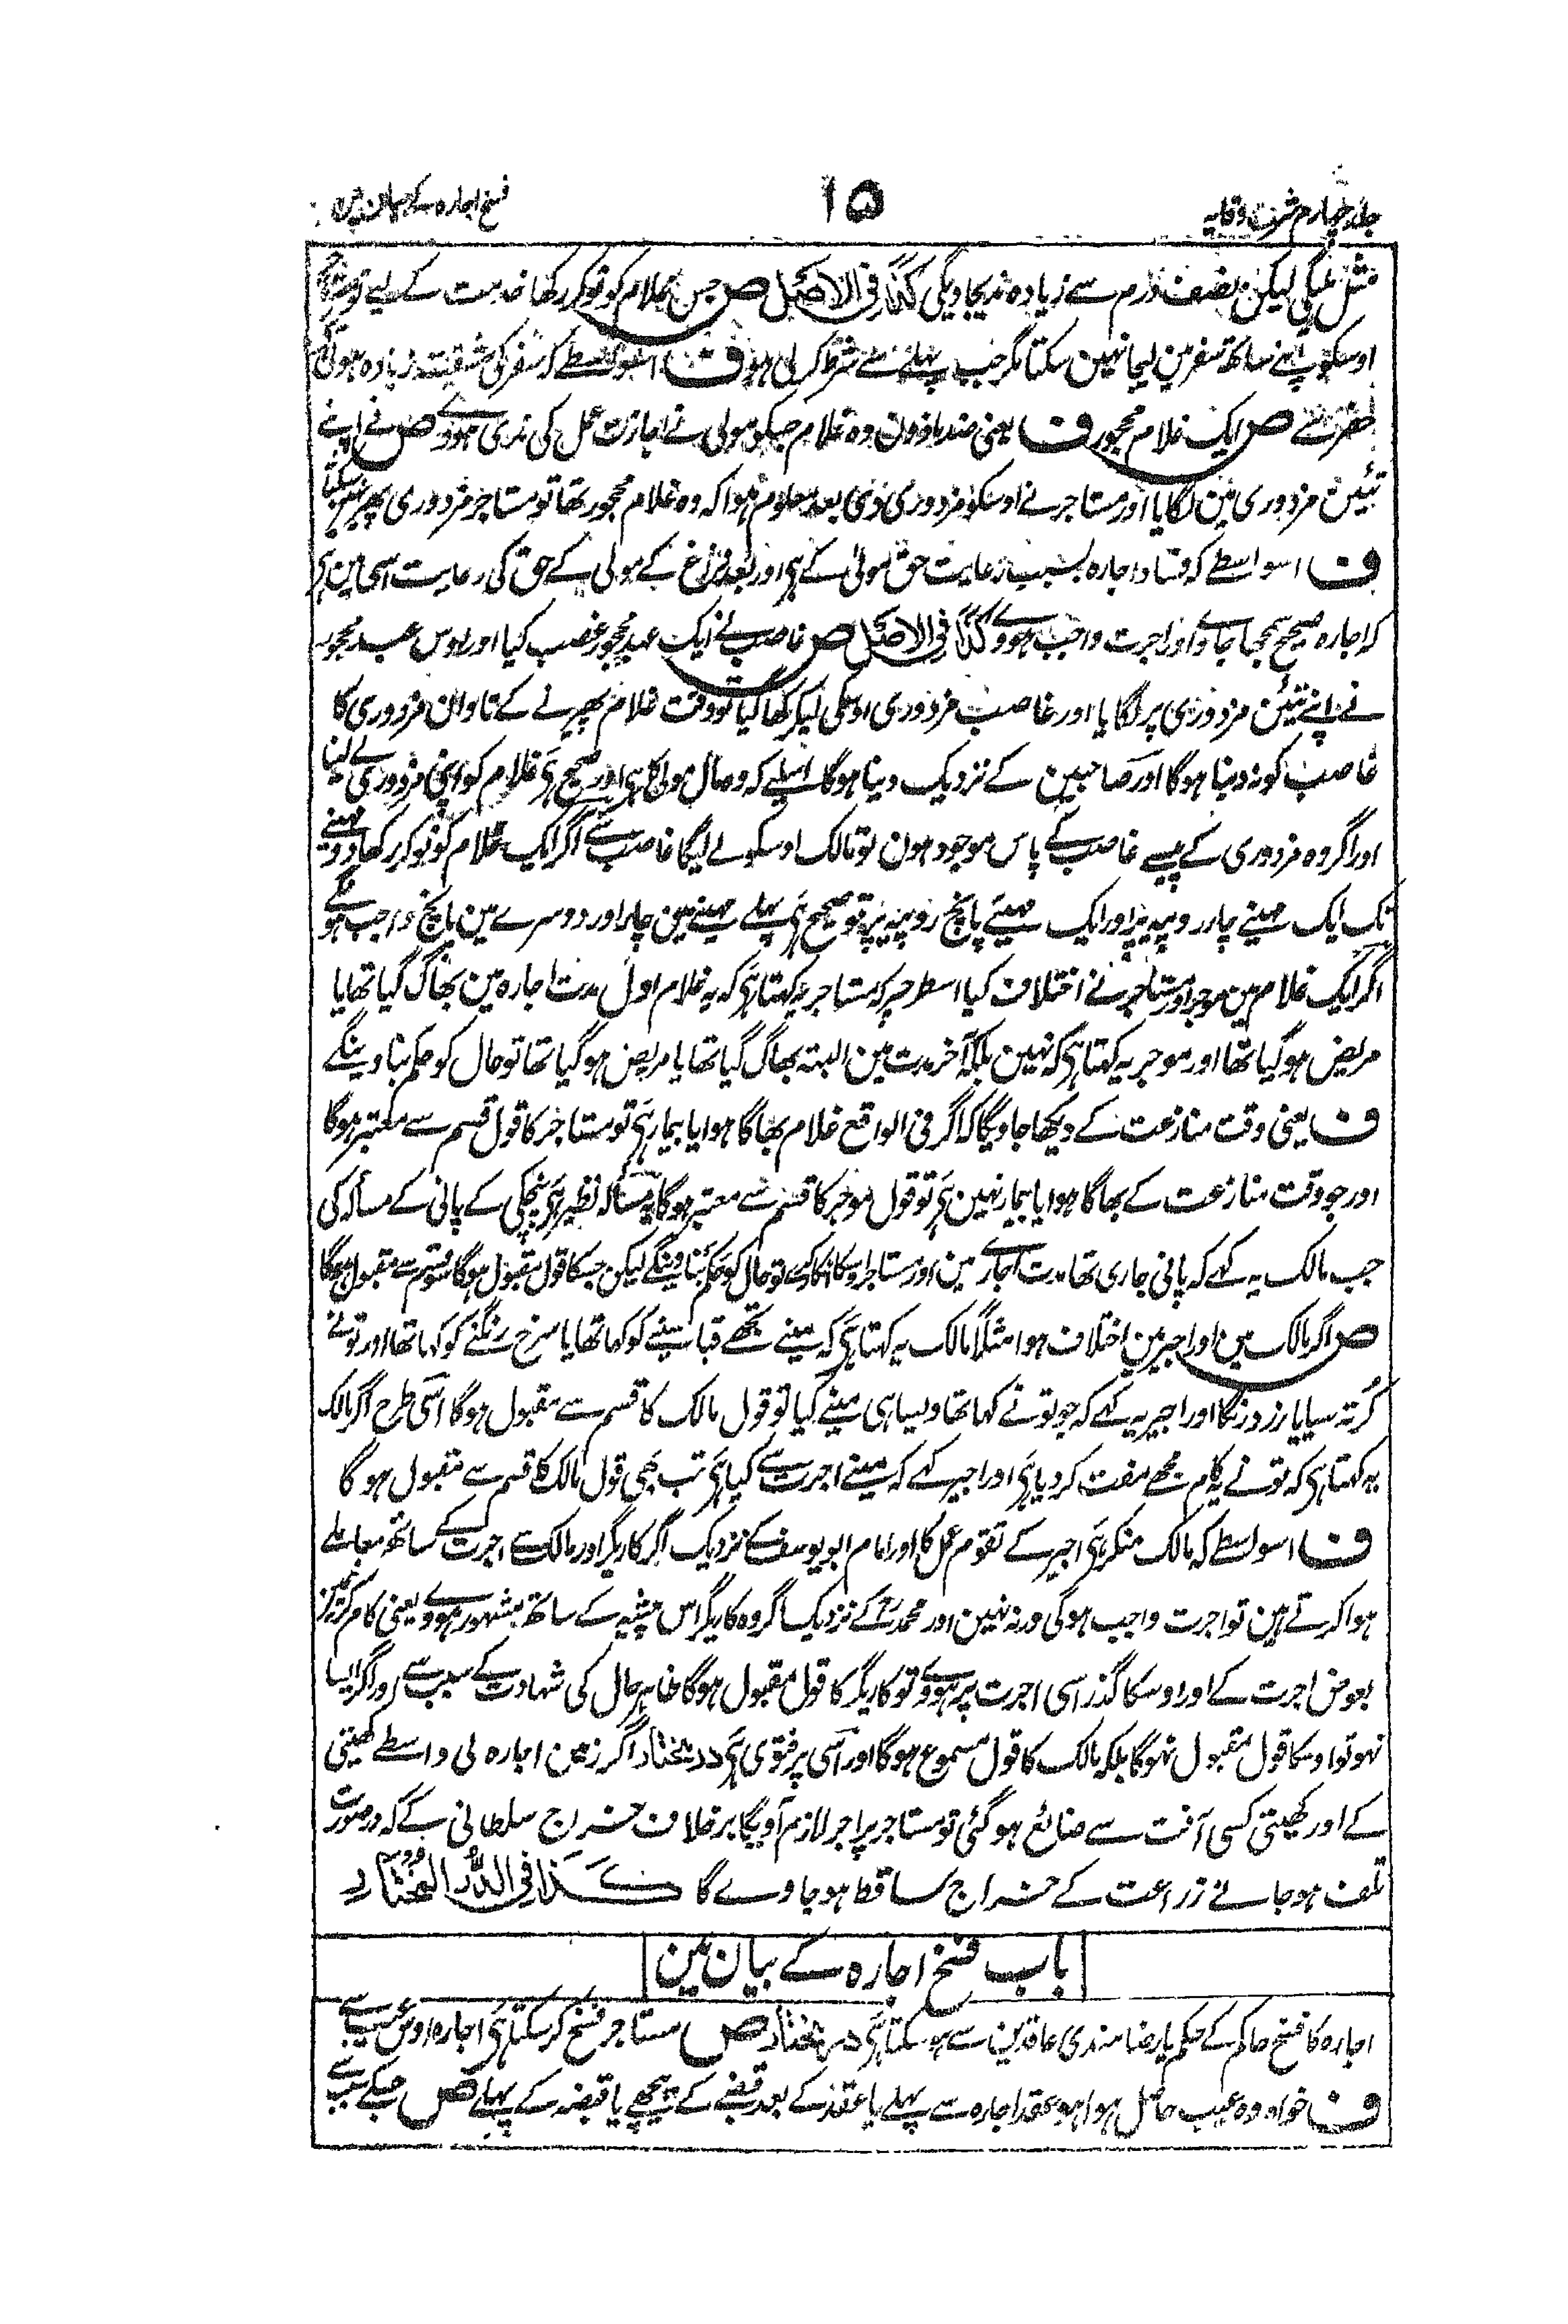 جلد چہارم شرح وقایہ
15
فسخ اجارہ کے بیان مین
مثل ملیگی لیکن نصف درم سے زیادہ ندیجاویگی کذا فی الاصل ص جس غلام کو نوکر رکھا خدمت کے لیے تو
اوسکو اپنے ساتھ سفر مین لیجا نہین سکتا مگر جب پہلے سے شرط کر لی ہو ف اسواسطے کہ سفر کی مشقت زیادہ ہوتی
حضر سے ص ایک غلام محجور ف یعنی ضد ماذون وہ غلام جسکو مولی نے اجازت عمل کی ندی ہووے ص نے اپنے
تئین مزدوری مین لگایا اور مستاجر نے اوسکو مزدوری دی بعد معلوم ہوا کہ وہ غلام محجور تھا تو مستاجر مزدوری پھیر نہین سکتا
ف اسواسطے کہ فساد اجارہ بسبب رعایت حق مولی کے ہی اور بعد فراغ کے مولی کے حق کی رعایت اسی مین ہی
کہ اجارہ صحیح سمجھا جاوے اور اجرت واجب ہووے کذا فی الاصل ص غاصب نے ایک عبد محجور غصب کیا اور اوس عبد محجور
نے اپنے تئین مزدوری پر لگایا اور غاصب مزدوری اوسکی لیکر کھا گیا تو وقت غلام پھیرنے کے تاوان مزدوری کا
غاصب کو نہ دینا ہوگا اور صاحبین کے نزدیک دینا ہوگا اسلیے کہ وہ مال مولی کا ہی اور صحیح ہی غلام کو اپنی مزدوری لے لینا
اور اگر وہ مزدوری کے پیسے غاصب کے پاس موجود ہون تو مالک اوسکو لے لیگا غاصب سے اگر ایک غلام کو نوکر رکھا دو مہینے
تک ایک مہینے چار روپیہ پر اور ایک مہینے پانچ روپیہ پر تو صحیح ہی پہلے مہینے مین چار اور دوسرے مین پانچ واجب ہونگے
اگر ایک غلام مین موجر اور مستاجر نے اختلاف کیا اسطرح پر کہ مستاجر یہ کہتا ہی کہ یہ غلام اول مدت اجارہ مین بھاگ گیا تھا یا
مریض ہو گیا تھا اور موجر یہ کہتا ہی کہ نہین بلکہ آخر مدت مین البتہ بھاگ گیا تھا یا مریض ہو گیا تھا تو حال کو حکم بنا دینگے
ف یعنی وقت منازعت کے دیکھا جاویگا کہ اگر فی الواقع غلام بھاگا ہوا یا بیمار ہی تو مستاجر کا قول قسم سے معتبر ہوگا
اور جو وقت منازعت کے بھاگا ہوا یا بیمار نہین ہی تو قول موجر کا قسم سے معتبر ہوگا یہ مسألہ نظیر ہی پنچکی کے پانی کے مسألہ کی
جب مالک یہ کہے کہ پانی جاری تھا مدت اجارے مین اور مستاجر اوسکا انکار کرے تو حال کو حکم بناوینگے لیکن جسکا قول مقبول ہوگا سو قسم سے مقبول ہوگا
ص اگر مالک مین اور اجیر مین اختلاف ہوا مثلاً مالک یہ کہتا ہی کہ مینے تجھے قبا سینے کو کہا تھا یا سرخ رنگنے کو کہا تھا اور تو نے
کرتہ سیا یا زرد رنگا اور اجیر یہ کہے کہ جو تو نے کہا تھا ویسا ہی مینے کیا تو قول مالک کا قسم سے مقبول ہوگا اسی طرح اگر مالک
یہ کہتا ہی کہ تو نے یہ کام مجھے مفت کر دیا ہی اور اجیر کہے کہ مینے اجرت سے کیا ہی تب بھی قول مالک کا قسم سے مقبول ہو گا
ف اسواسطے کہ مالک منکر ہی اجیر کے تقوم عمل کا اور امام ابو یوسف کے نزدیک اگر کاریگر اور مالک سے اجرت کے ساتھ معاملے
ہوا کرتے ہین تو اجرت واجب ہوگی ورنہ نہین اور محمد رح کے نزدیک اگر وہ کاریگر اس پیشہ کے ساتھ مشہور ہووے یعنی کام کرنے مین
بعوض اجرت کے اور اوسکا گذر اسی اجرت پر ہووے تو کاریگر کا قول مقبول ہوگا ظاہر حال کی شہادت کے سبب سے اور اگر ایسا
نہو تو اوسکا قول مقبول نہوگا بلکہ مالک کا قول مسموع ہوگا اور اسی پر فتوی ہی در مختار اگر زمین اجارہ لی واسطے کھیتی
کے اور کھیتی کسی آفت سے ضائع ہو گئی تو مستاجر پر اجر لازم آویگا برخلاف خراج سلطانی کے کہ درصورت
تلف ہو جانے زراعت کے خراج ساقط ہو جاوے گا کذا فی الدر المختار
باب فسخ اجارہ کے بیان مین
اجارہ کا فسخ حاکم کے حکم یا رضامندی عاقدین سے ہو سکتا ہی در مختار ص مستاجر فسخ کر سکتا ہی اجارہ اوس عیب سے
ف خواہ وہ عیب حاصل ہوا ہو عقد اجارہ سے پہلے یا عقد کے بعد قبضے کے پیچھے یا قبضہ کے پہلے ص جسکے سبب سے